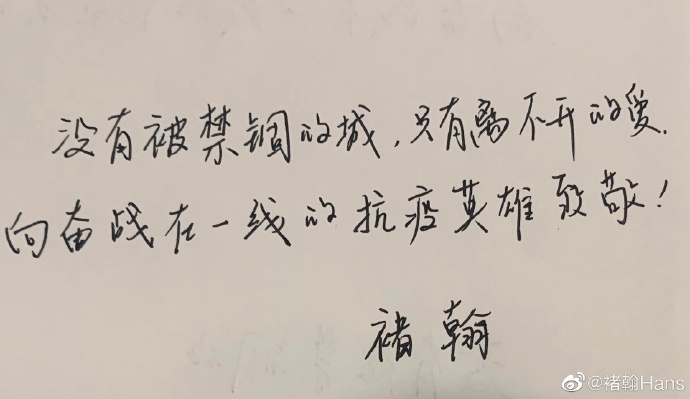 没有被禁锢的城，只有离不开的爱.
向奋战在一线的抗疫英雄致敬！
褚翰
@褚翰Hans